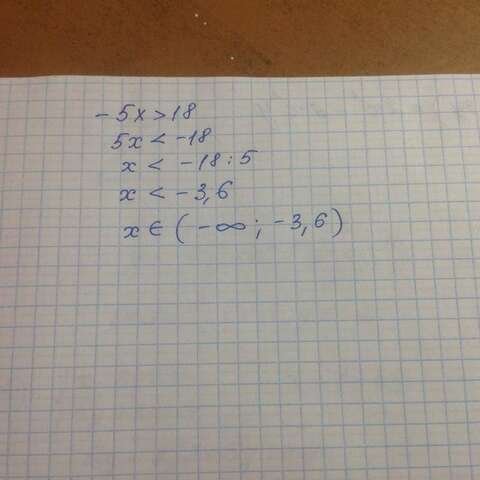 - 5x > 18
5x < -18
x < -18 : 5
x < -3,6
x ∈ (-∞; -3,6)